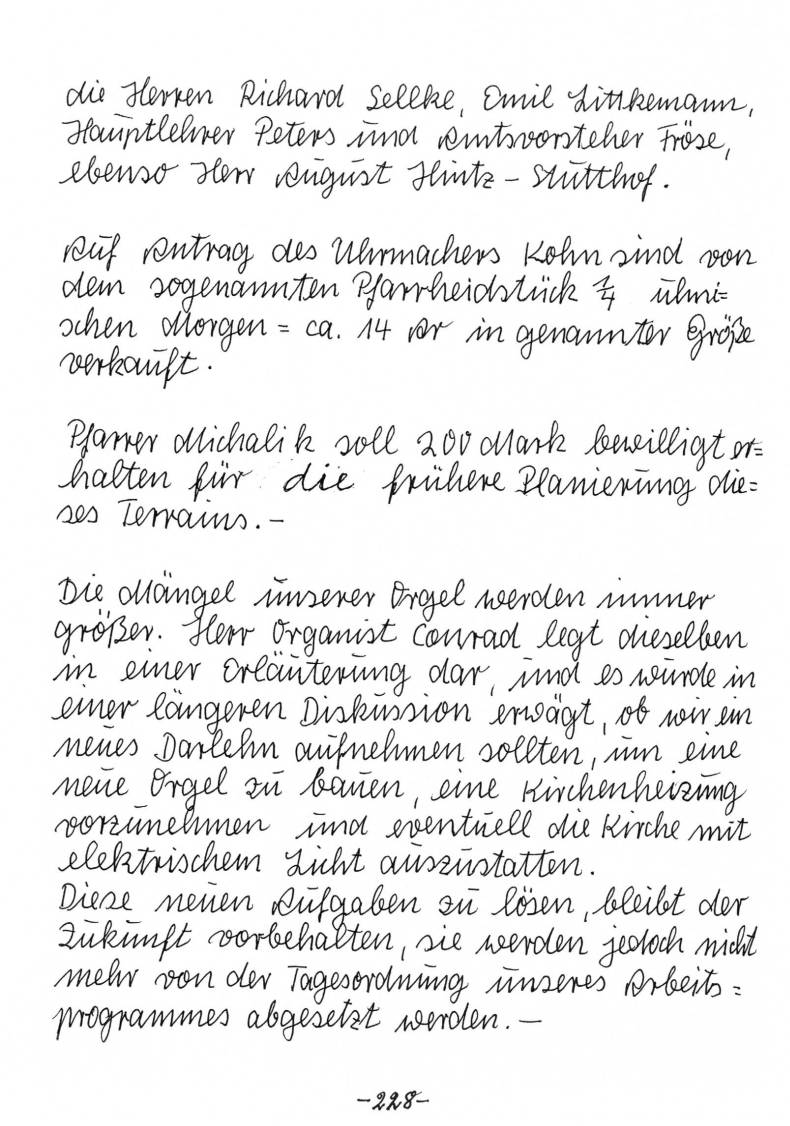 die Herren Richard Sellke, Emil Littkemann,
Hauptlehrer Peters und Amtsvorsteher Fröse,
ebenso Herr August Hintz - Stutthof.
Auf Antrag des Uhrmachers Kohn sind von
dem sogenannten Pfarrheidstück ¼ ulmi=
schen Morgen = ca. 14 Ar in genannter Größe
verkauft.
Pfarrer Michalik soll 200 Mark bewilligt er=
halten für die frühere Planierung die=
ses Terrains. -
Die Mängel unserer Orgel werden immer
größer. Herr Organist Conrad legt dieselben
in einer Erläuterung dar, und es wurde in
einer längeren Diskussion erwägt, ob wir ein
neues Darlehn aufnehmen sollten, um eine
neue Orgel zu bauen, eine Kirchenheizung
vorzunehmen und eventuell die Kirche mit
elektrischem Licht auszustatten.
Diese neuen Aufgaben zu lösen, bleibt der
Zukunft vorbehalten, sie werden jedoch nicht
mehr von der Tagesordnung unseres Arbeits=
programmes abgesetzt werden. -
-228-